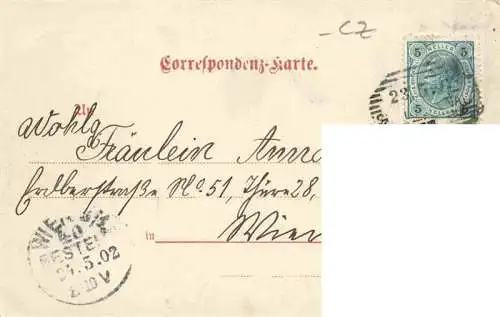 -CZ
5 HELLER 5
Correspondenz-Karte.
23.
An
Wohlg
Fräulein Anna
Erdbergstraße No. 51, Thüre 28,
in Wien
WIEN
BESTELLT
5.02
V